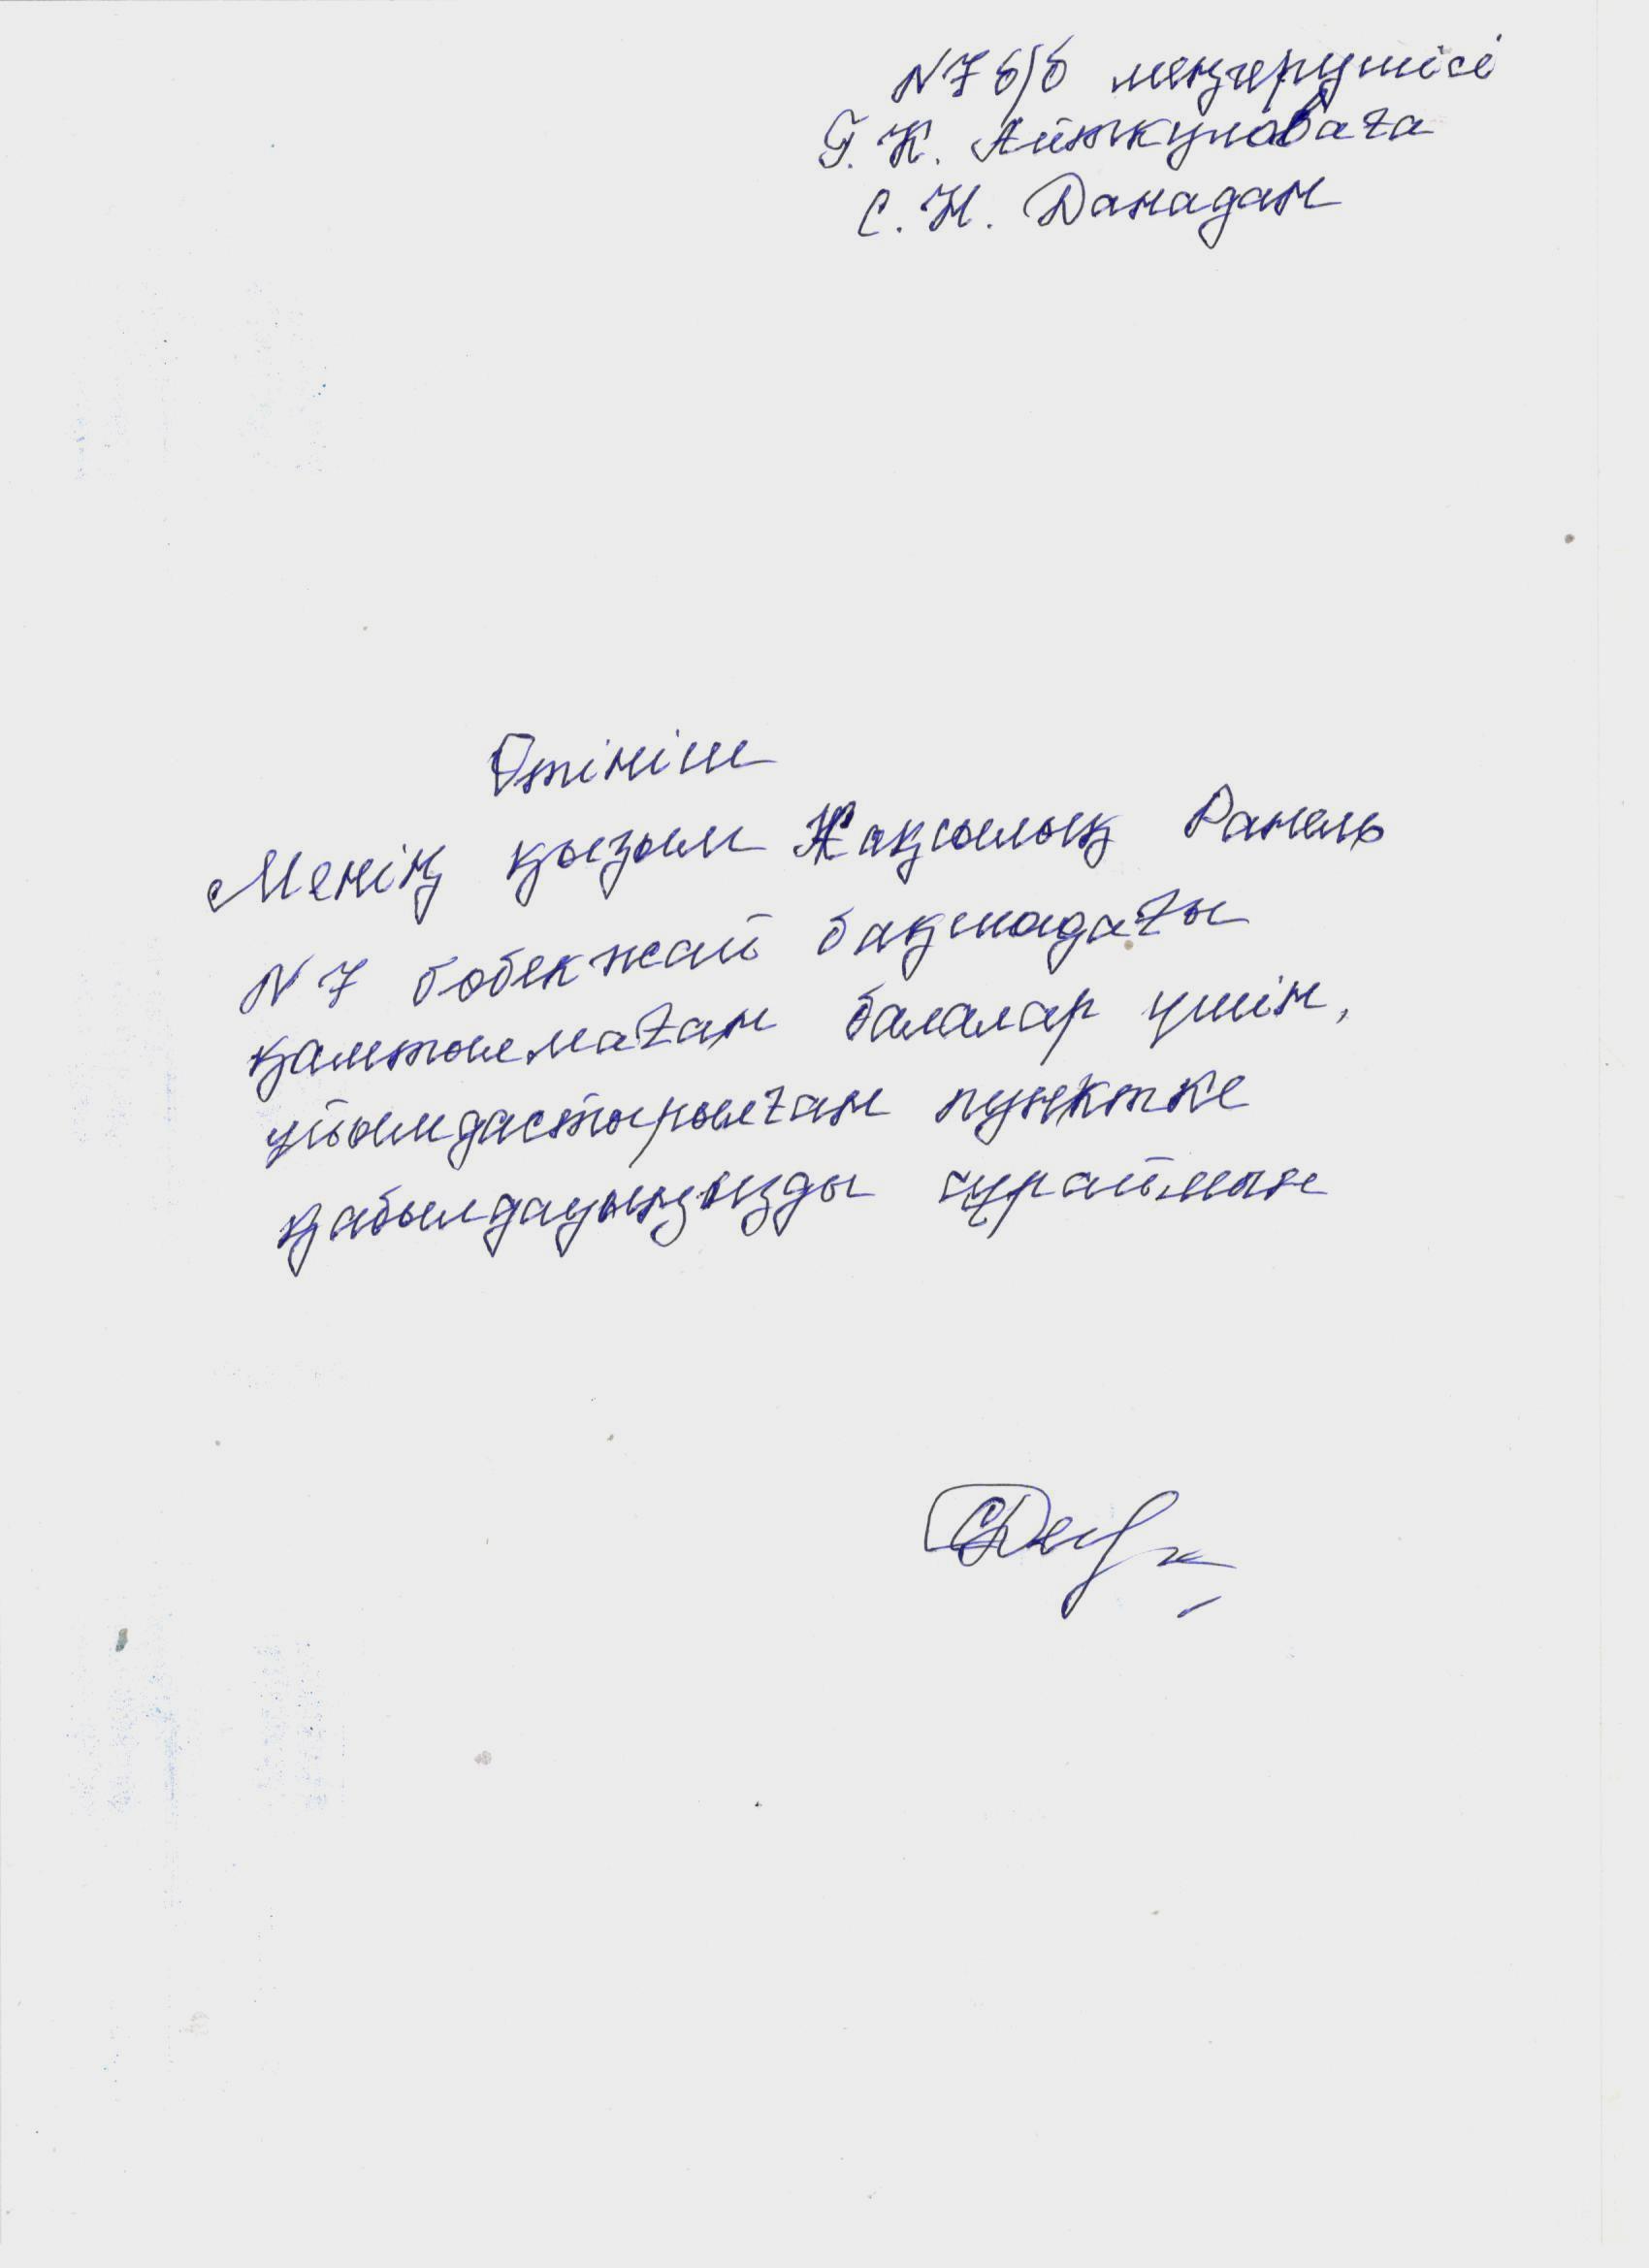 N7 б/б меңгерушісі
Г. К. Айткуловаға
С. Н. Данадан
Өтініш
Менің қызым Жақсылық Ранель
N7 бобекжай бақшадағы
қамтылмаған балалар үшін,
ұйымдастырылған пунктке
қабылдауыңызды сұраймын